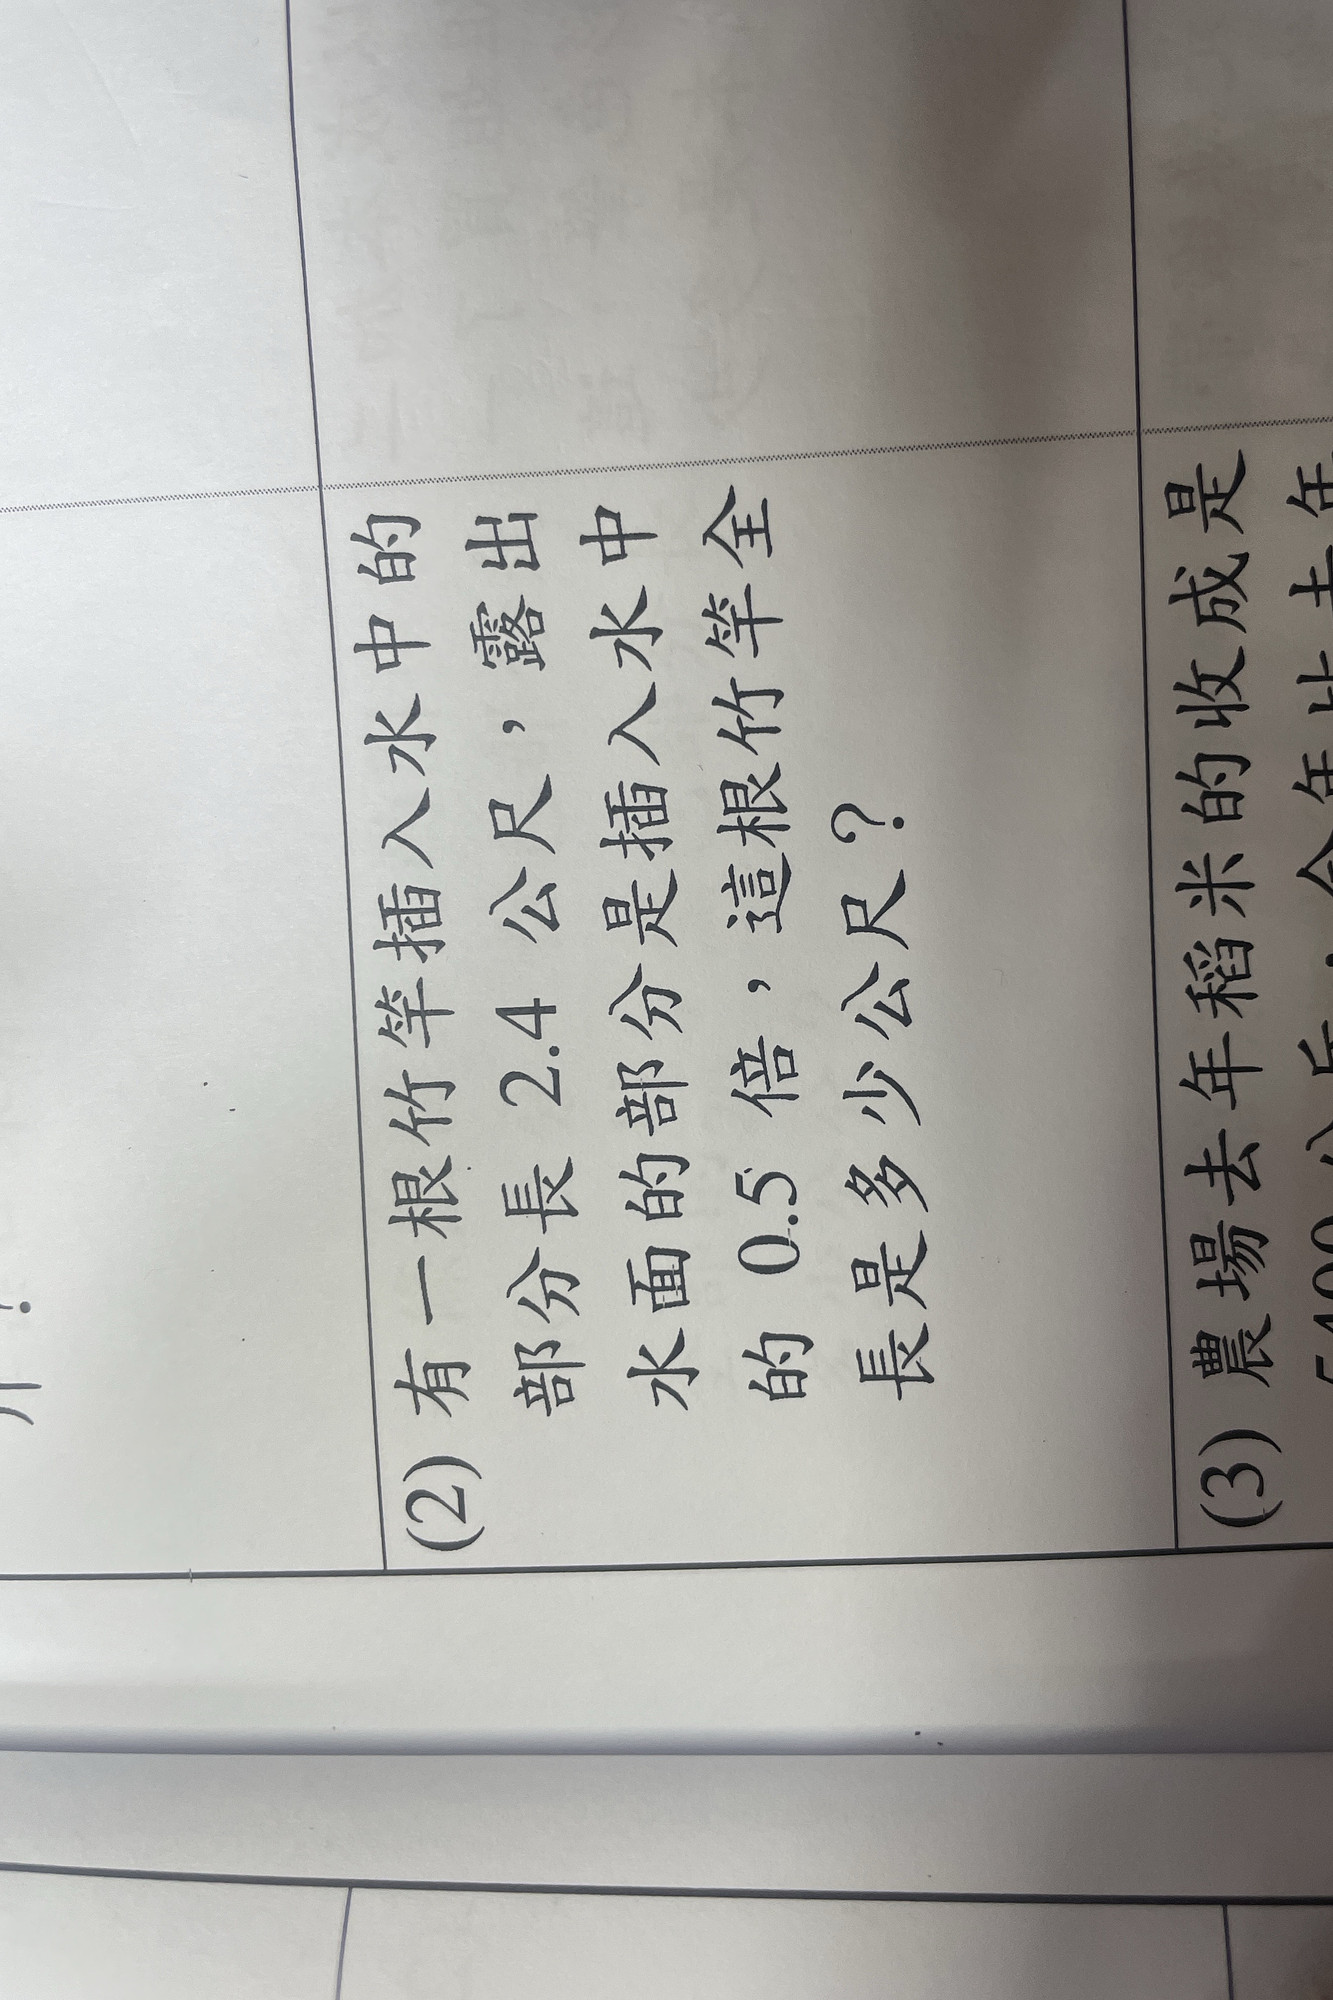 (2) 有一根竹竿插入水中的
部分長 2.4 公尺，露出
水面的部分是插入水中
的 0.5 倍，這根竹竿全
長是多少公尺？
(3) 農場去年稻米的收成是